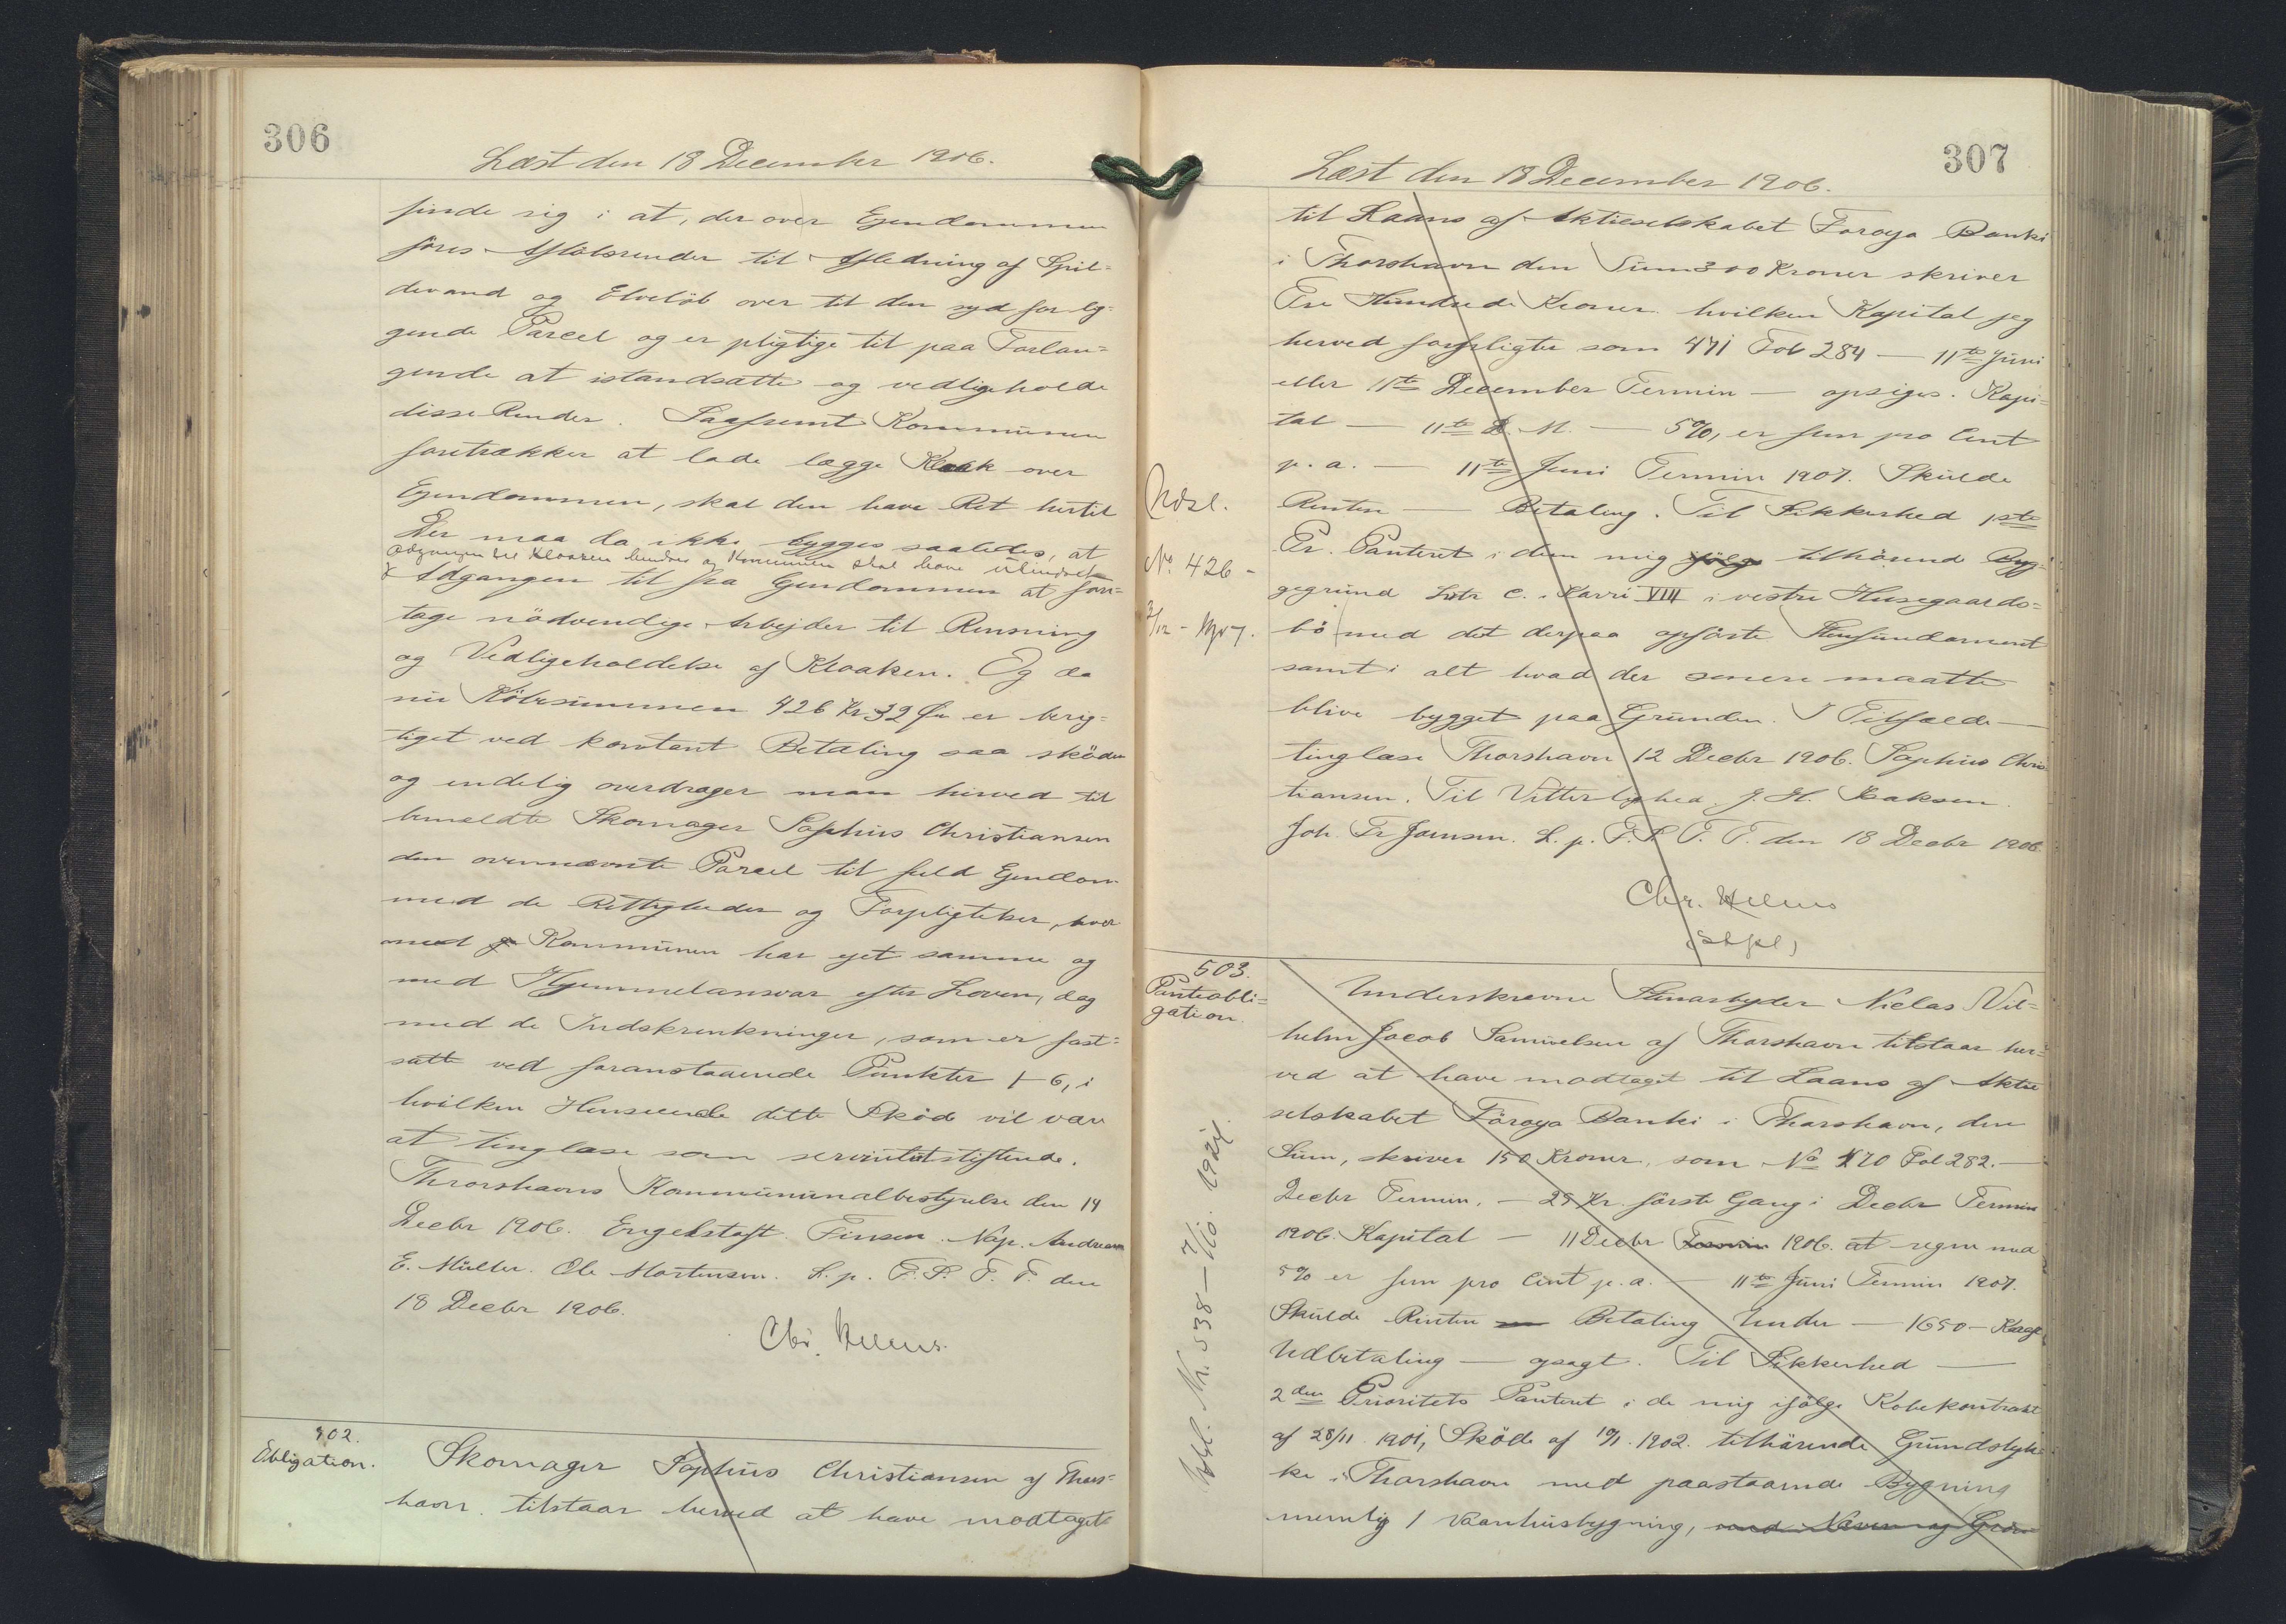 306
Læst den 18 December 1906.
finde sig i at, der over Ejendommen
føres Afløbsrender til Afledning af Spil-
devand og Elveløb over til den syd for lig-
gende Parcel og er pligtige til paa Forlan-
gende at istandsætte og vedligeholde
disse Render. Saafremt Kommunen
foretrækker at lade lægge Kloak over
Ejendommen, skal den have Ret hertil
Der maa da ikke bygges saaledes, at
Adgangen til Kloaken hindres og Kommunen skal have uhindret
Adgangen til fra Ejendommen at fore-
tage nødvendige Arbejder til Rensning
og Vedligeholdelse af Kloaken. Og da
nu Købesummen 426 Kr 32 Øre er berig-
tiget ved kontant Betaling saa skøder
og endelig overdrager man herved til
bemeldte Skomager Sophus Christiansen
den ovennævnte Parcel til fuld Ejendom
med de Rettigheder og Forpligtelser, hvor
med Kommunen har ejet samme og
med Hjemmelansvar efter Loven, dog
med de Indskrænkninger, som er fast-
satte ved foranstaaende Punkter 1-6, i
hvilken Henseende dette Skøde vil være
at tinglæse som servitutstiftende.
Throrshavns Kommununalbestyrelse den 14
Decbr 1906. Engelstoft. Finsen. Nap. Andreasen
E. Müller. Ole Mortensen. L. p. F. S. T. T. den
18 Decbr 1906.
Chr. Helms.
502.
Obligation.
Skomager Sophus Christiansen af Thors-
havn. tilstaar herved at have modtaget
307
Læst den 18 December 1906.
til Laans af Aktieselskabet Føroya Banki
i Thorshavn den Sum 300 Kroner skriver
Tre Hundrede Kroner. hvilken Kapital jeg
herved forpligter som 471 Fol 284 — 11te Juni
eller 11te December Termin — opsiges. Kapi-
tal — 11te d. M. — 5%, er fem pro Cent
p. a. — 11te Juni Termin 1907. Skulde
Renten — Betaling. Til Sikkerhed 1ste
Pr. Panteret i den mig ifølge tilhørende Byg-
gegrund Litr c. i Karré VIII i vestre Husegaards-
bø med det derpaa opførte Stenfundament
samt i alt hvad der senere maatte
blive bygget paa Grunden. I Tilfælde —
tinglæse Thorshavn 12 Decbr 1906. Sophus Chris-
tiansen. Til Vitterlighed. J. H. Isaksen.
Joh. Fr Joensen. L. p. F. S. T. T. den 18 Decbr 1906
Chr. Helms
Udsl.
No. 426 -
3/12 - 1907.
503.
Panteobli-
gation.
Underskrevne Stenarbejder Niclas Vil-
helm Jacob Samuelsen af Thorshavn tilstaar her-
ved at have modtaget til Laans af Aktie
selskabet Føroya Banki i Thorshavn, den
Sum, skriver 150 Kroner, som No 470 Fol 282. —
Decbr Termin. — 25 Kr. første Gang i Decbr Termin
1906. Kapital — 11 Decbr Termin 1906. at regne med
5% er fem pro Cent p. a. — 11te Juni Termin 1907.
Skulde Renten — Betaling Under — 1650 —
Udbetaling — opsagt. Til Sikkerhed —
2den Prioritets Panteret i de mig ifølge Købekontrakt
af 28/11 1901, Skøde af 10/1. 1902. tilhørende Grundstyk-
ke i Thorshavn med paastaaende Bygning
nemlig 1 Vaanhusbygning,
Udsl. Nr. 538 — 7/10. 1924.